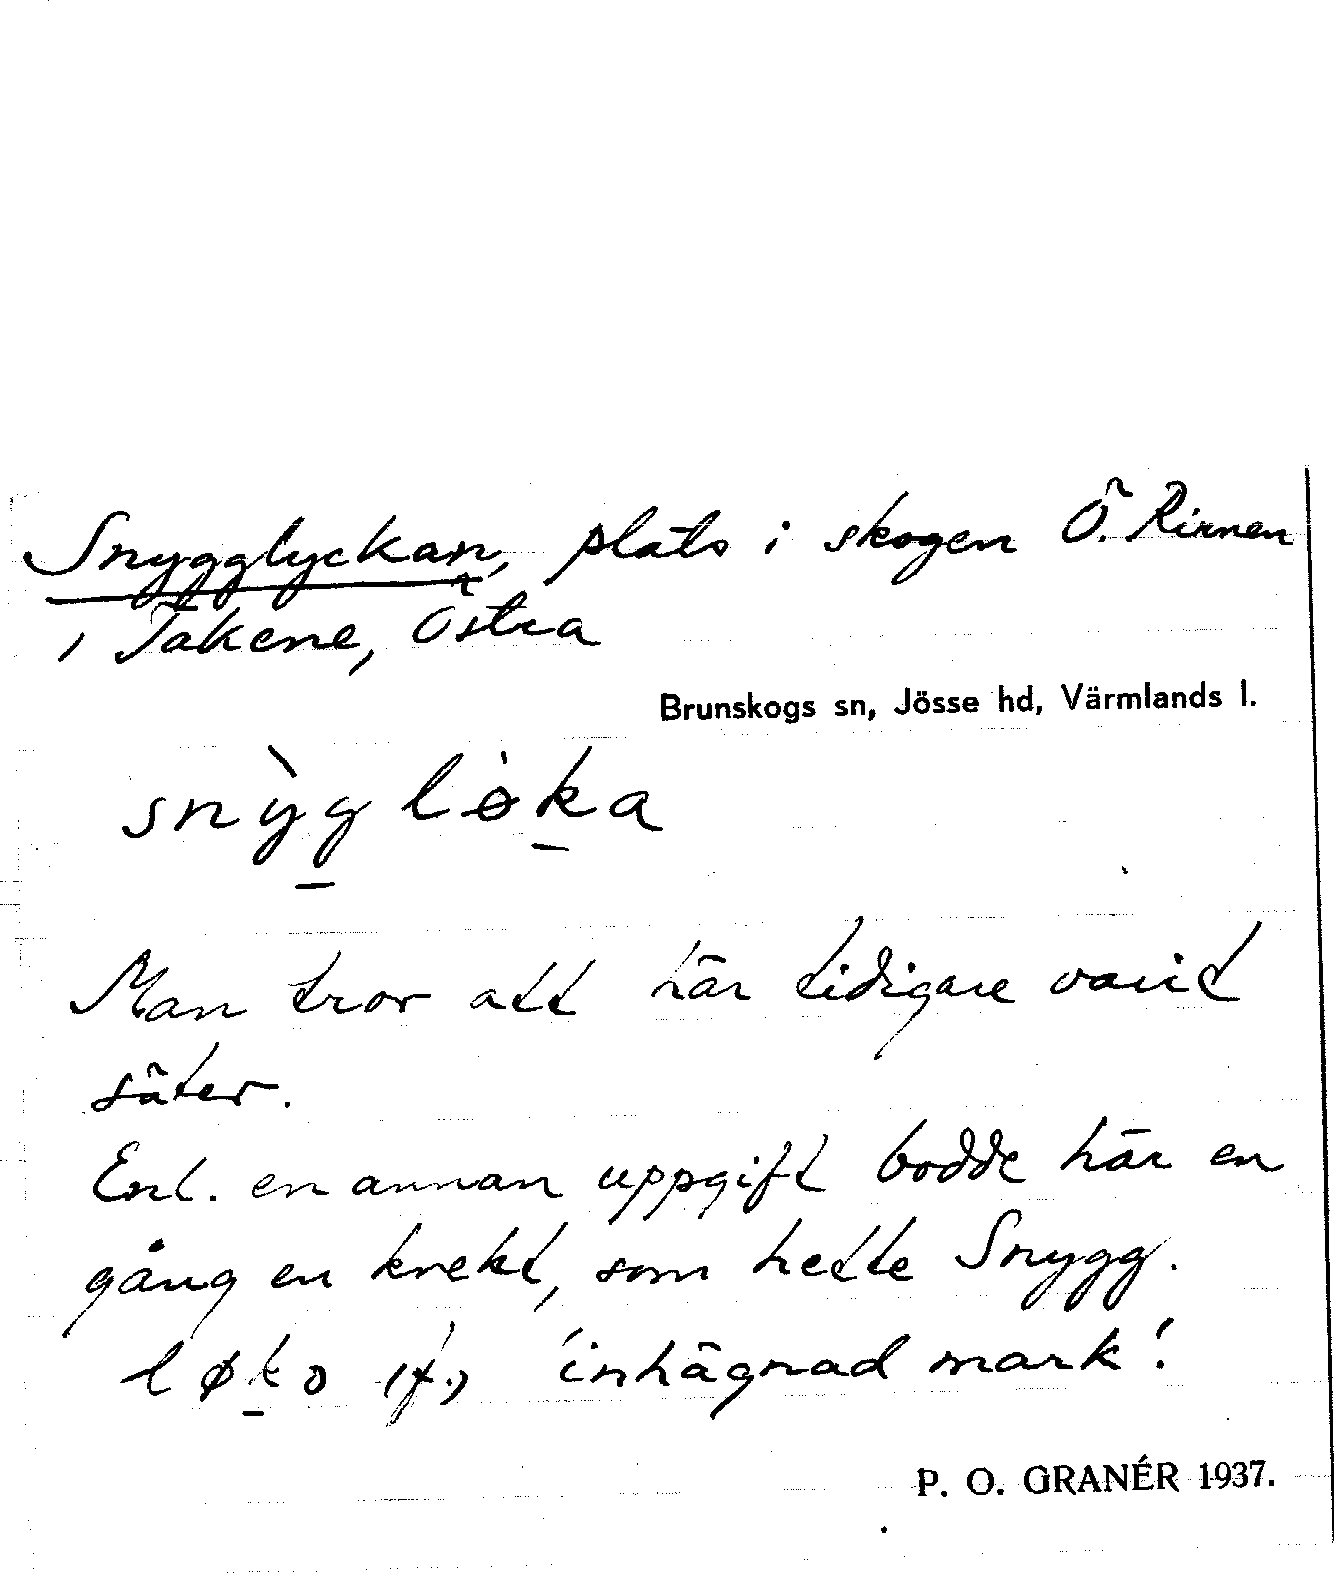 Snygglyckan, plats i skogen Ö. Rinnen
i Takene, Östra
Brunskogs sn, Jösse hd, Värmlands l.
snỳg løka
Man tror att här tidigare varit
säter.
Enl. en annan uppgift bodde här en
gång en knekt, som hette Snygg.
løko (f.) 'inhägnad mark'.
P. O. GRANÉR 1937.